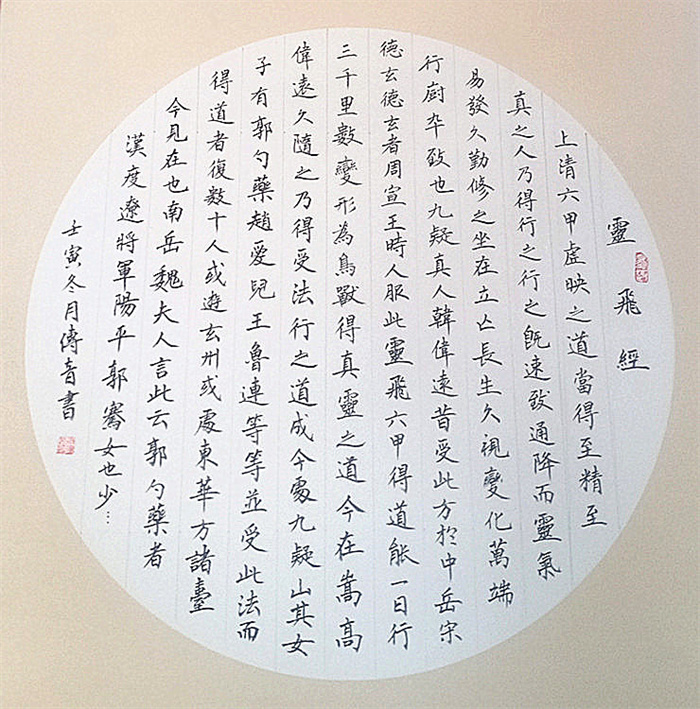 靈飛經
上清六甲虛映之道當得至精至
真之人乃得行之行之既速致通降而靈氣
易發久勤修之坐在立亾長生久視變化萬端
行廚卒致也九疑真人韓偉遠昔受此方於中岳宋
德玄德玄者周宣王時人服此靈飛六甲得道能一日行
三千里數變形為鳥獸得真靈之道今在嵩高
偉遠久隨之乃得受法行之道成今處九疑山其女
子有郭勺藥趙愛兒王魯連等等並受此法而
得道者復數十人或遊玄州或處東華方諸臺
今見在也南岳魏夫人言此云郭勺藥者
漢度遼將軍陽平郭騫女也少…
壬寅冬月傳音書